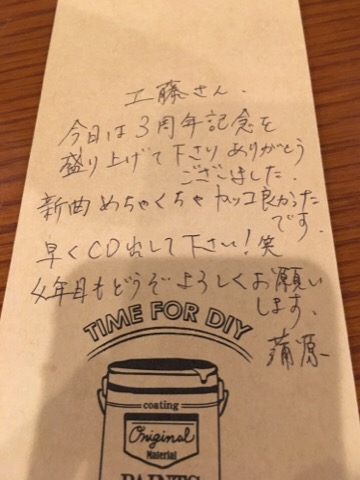 工藤さん、
今日は3周年記念を
盛り上げて下さりありがとう
ございました。
新曲めちゃくちゃカッコ良かった
です。
早くCD出して下さい!笑
4年目もどうぞよろしくお願い
します、
蒲原
TIME FOR DIY
coating
Original
Material
PAINTS